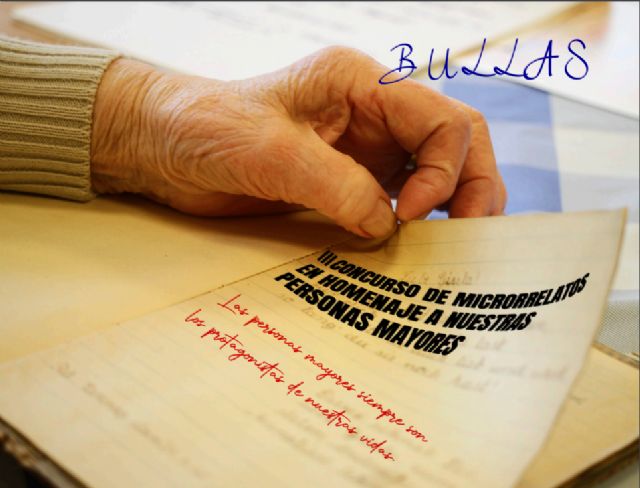 BULLAS
III CONCURSO DE MICRORRELATOS
EN HOMENAJE A NUESTRAS
PERSONAS MAYORES
Las personas mayores siempre son
los protagonistas de nuestras vidas.